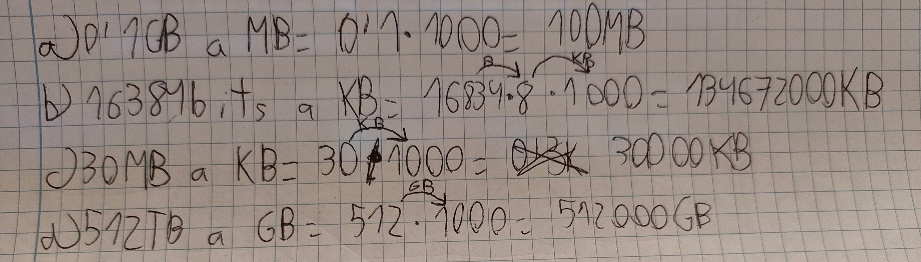 a) 0'1GB a MB = 0'1 · 1000 = 100MB
b) 16384bits a KB = 16834 · 8 · 1000 = 134672000KB
c) 30MB a KB = 30 · 1000 = 30000KB
d) 512TB a GB = 512 · 1000 = 512000GB